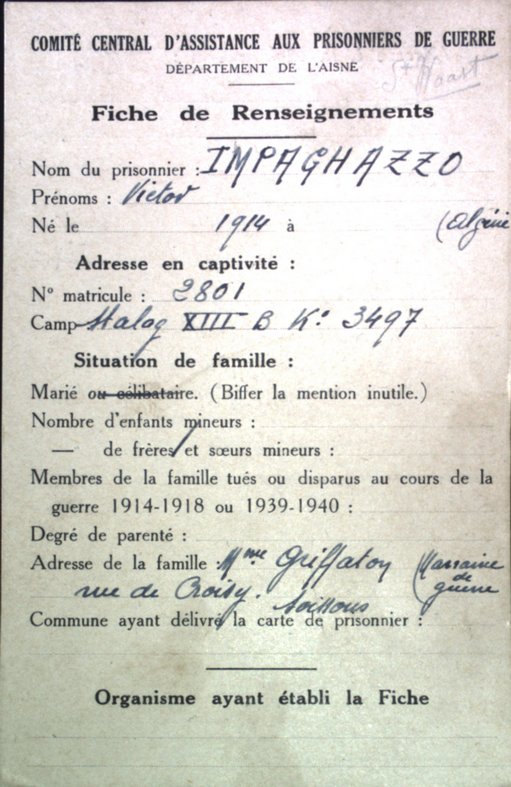 COMITÉ CENTRAL D'ASSISTANCE AUX PRISONNIERS DE GUERRE
DÉPARTEMENT DE L'AISNE
St
Fiche de Renseignements
Nom du prisonnier : IMPAGHAZZO
Prénoms : Victor
Né le 1914 à (Algérie
Adresse en captivité :
N° matricule : 2801
Camp Stalag XIII B K° 3497
Situation de famille :
Marié ou célibataire. (Biffer la mention inutile.)
Nombre d'enfants mineurs : /
— de frères et sœurs mineurs :
Membres de la famille tués ou disparus au cours de la
guerre 1914-1918 ou 1939-1940 :
Degré de parenté :
Adresse de la famille : Mme Griffaton (Marraine
de
rue de Croisy. Soissons guerre
Commune ayant délivré la carte de prisonnier :
Organisme ayant établi la Fiche